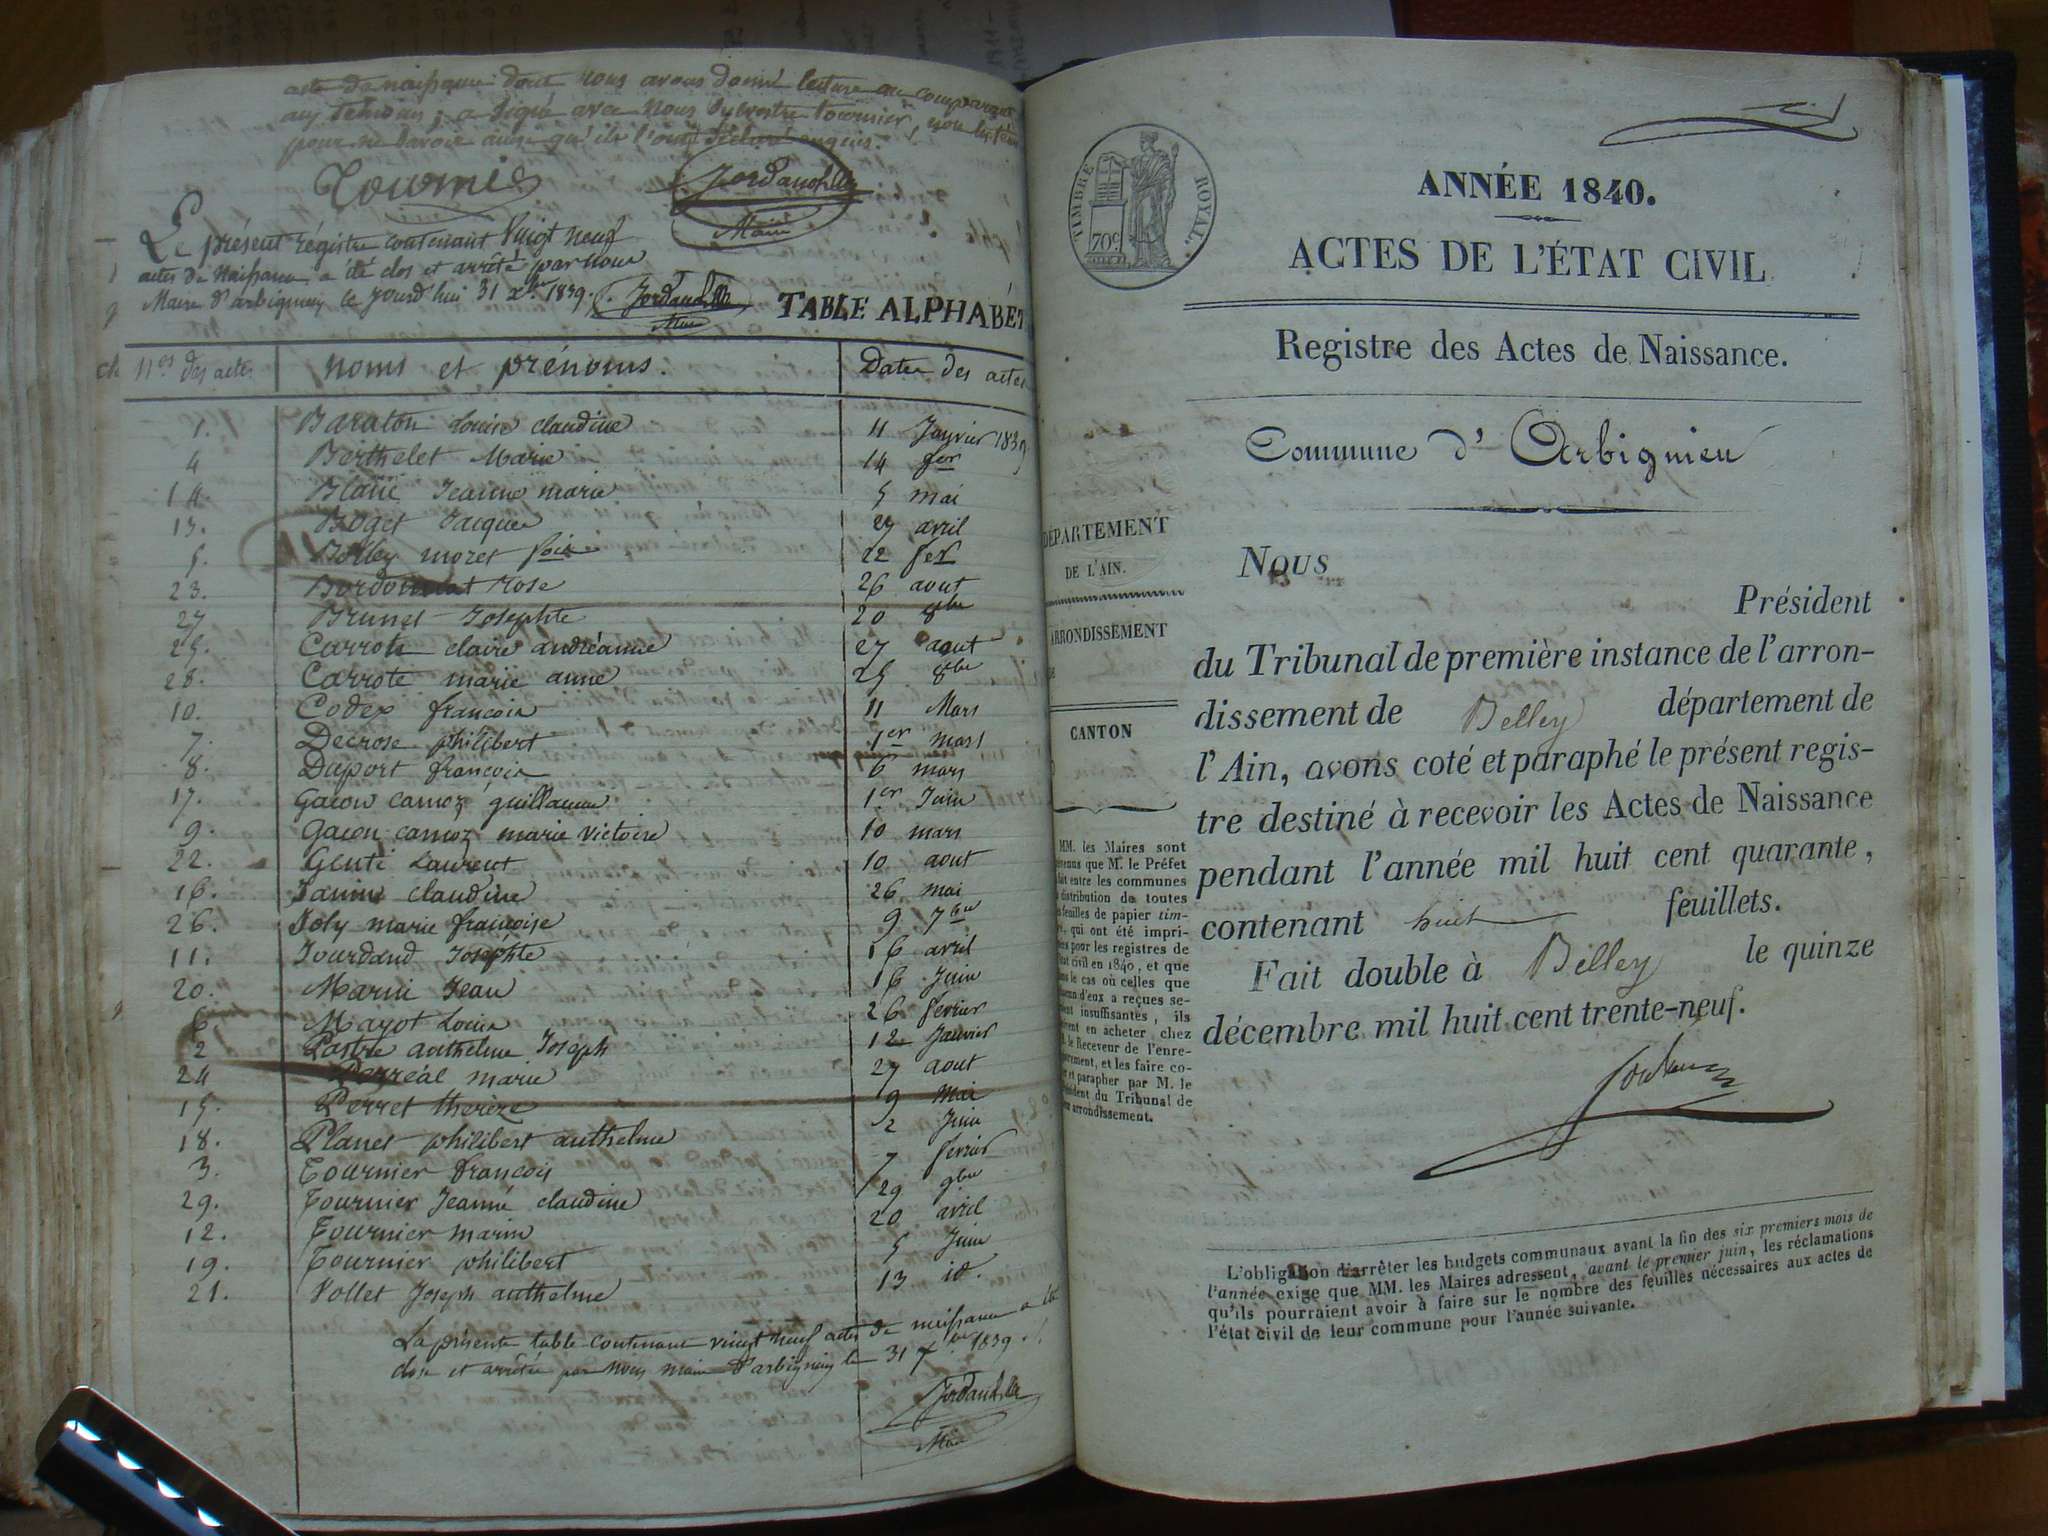 acte de naissance dont nous avons donné lecture au comparant
aux témoins, a signé avec nous Sylvestre tournier, non les tém
pour ne savoir ainsi qu'ils l'ont déclaré enquis.
Tournier
Maire
Le présent régistre contenant Vingt neuf
actes de Naissance a été clos et arrêté par nous
Maire d'arbignieu le jourd'hui 31 xbre 1839.
Maire
TABLE ALPHABÉT
Nos des actes
Noms et prénoms.
Dates des actes
1. Baraton Louise claudine 11 Janvier 1839
4 Berthelet Marie 14 fer
14. Blanc Jeanne marie 5 mai
13. Boget Jacques 27 avril
5. Bolley moret fois 22 fer
23. Rose 26 aout
27 Brunet Josephte 20 8bre
25. Carrote claire andréanne 27 aout
28. Carrote marie anne 25 8bre
10. Codex françois 11 Mars
7. Decrose philibert 1er mars
8. Duport françois 6 mars
17. Gacon camoz guillaume 1er Juin
9. Gacon camoz marie victoire 10 mars
22. Genti Laurent 10 aout
16. Janin claudine 26 mai
26. Joly marie françoise 9 7bre
11. Jourdand Josephte 16 avril
20. Marin Jean 16 Juin
6. Mayot Louis 26 fevrier
2 Pastre anthelme Joseph 12 Janvier
24 Perréal marie 27 aout
15. Perret therèze 9 Mai
18. Planet philibert anthelme 2 Juin
3. Tournier françois 7 fevrier
29. Tournier Jeanne claudine 29 9bre
12. Tournier marin 20 avril
19. Tournier philibert 5 Juin
21. Vollet Joseph anthelme 13 id.
La présente table contenant vingt neuf actes de naissance a été
close et arrêtée par nous maire d'arbignieu le 31 xbre 1839.
Maire
TIMBRE ROYAL.
70c.
ANNÉE 1840.
ACTES DE L'ÉTAT CIVIL
Registre des Actes de Naissance.
Commune d' Arbignieu
DÉPARTEMENT
DE L'AIN.
ARRONDISSEMENT
CANTON
MM. les Maires sont
que M. le Préfet
entre les communes
distribution de toutes
feuilles de papier tim-
, qui ont été impri-
pour les registres de
civil en 1840, et que
le cas où celles que
d'eux a reçues se-
insuffisantes, ils
en acheter, chez
le Receveur de l'enre-
, et les faire co-
et parapher par M. le
du Tribunal de
arrondissement.
Nous
Président
du Tribunal de première instance de l'arron-
dissement de Belley département de
l'Ain, avons coté et paraphé le présent regis-
tre destiné à recevoir les Actes de Naissance
pendant l'année mil huit cent quarante,
contenant huit feuillets.
Fait double à Belley le quinze
décembre mil huit cent trente-neuf.
L'obligation d'arrêter les budgets communaux avant la fin des six premiers mois de
l'année exige que MM. les Maires adressent, avant le premier juin, les réclamations
qu'ils pourraient avoir à faire sur le nombre des feuilles nécessaires aux actes de
l'état civil de leur commune pour l'année suivante.